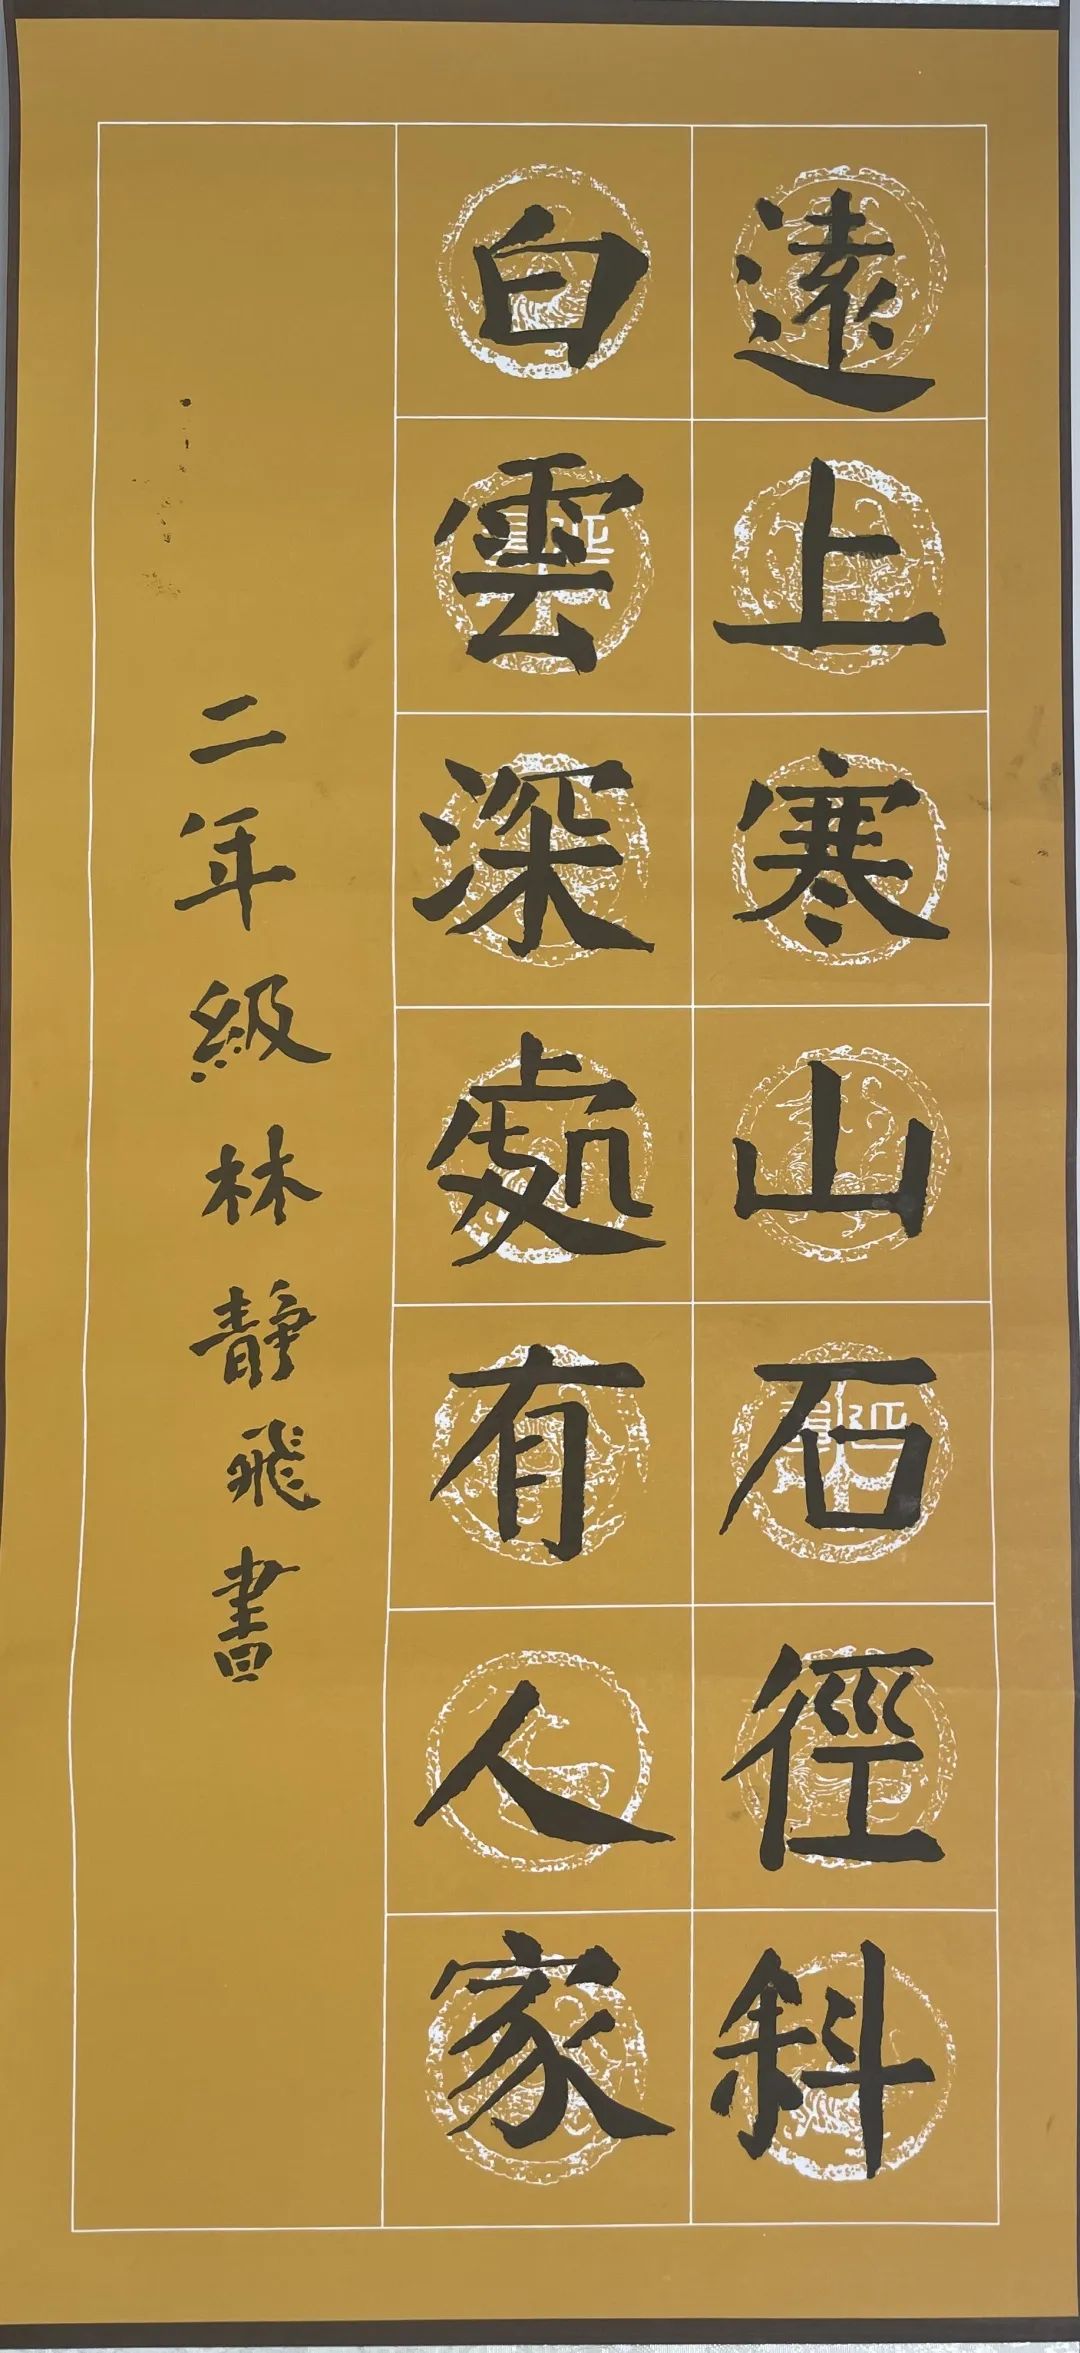 遠上寒山石徑斜
白雲深處有人家
二年級林靜飛書